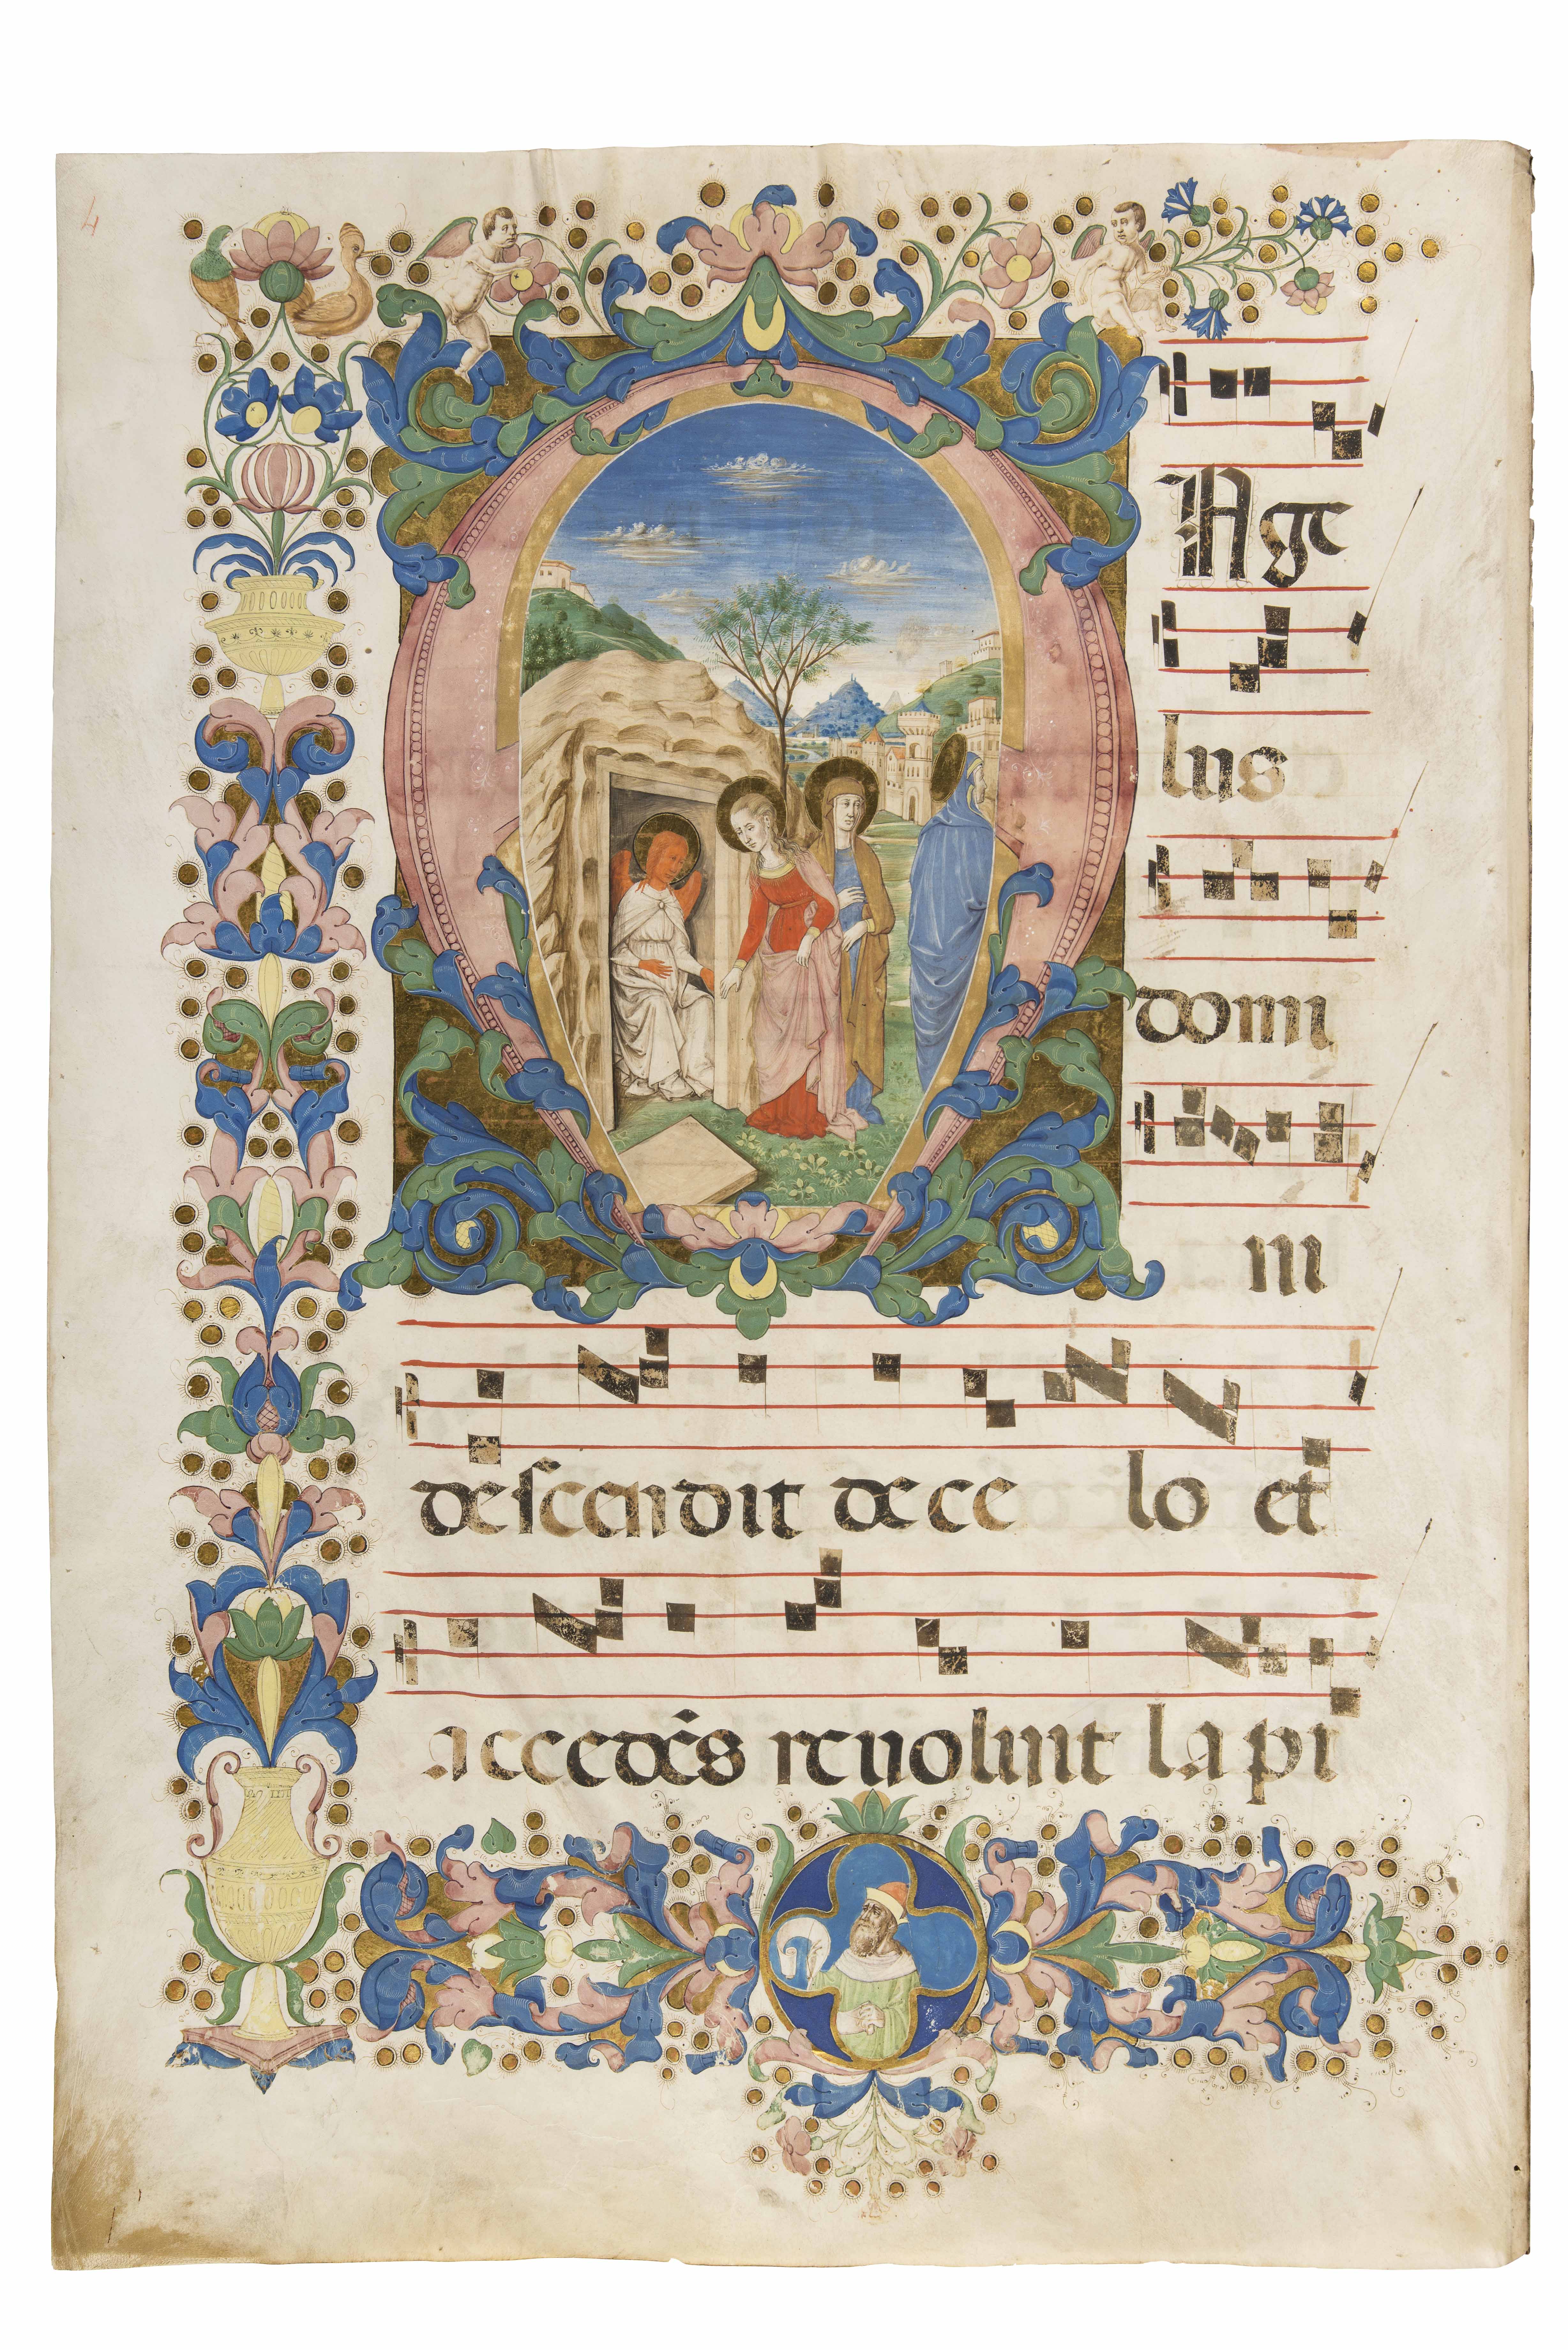 4
Age
lus
domi
ni
descendit de ce lo et
accedēs revolvit lapi